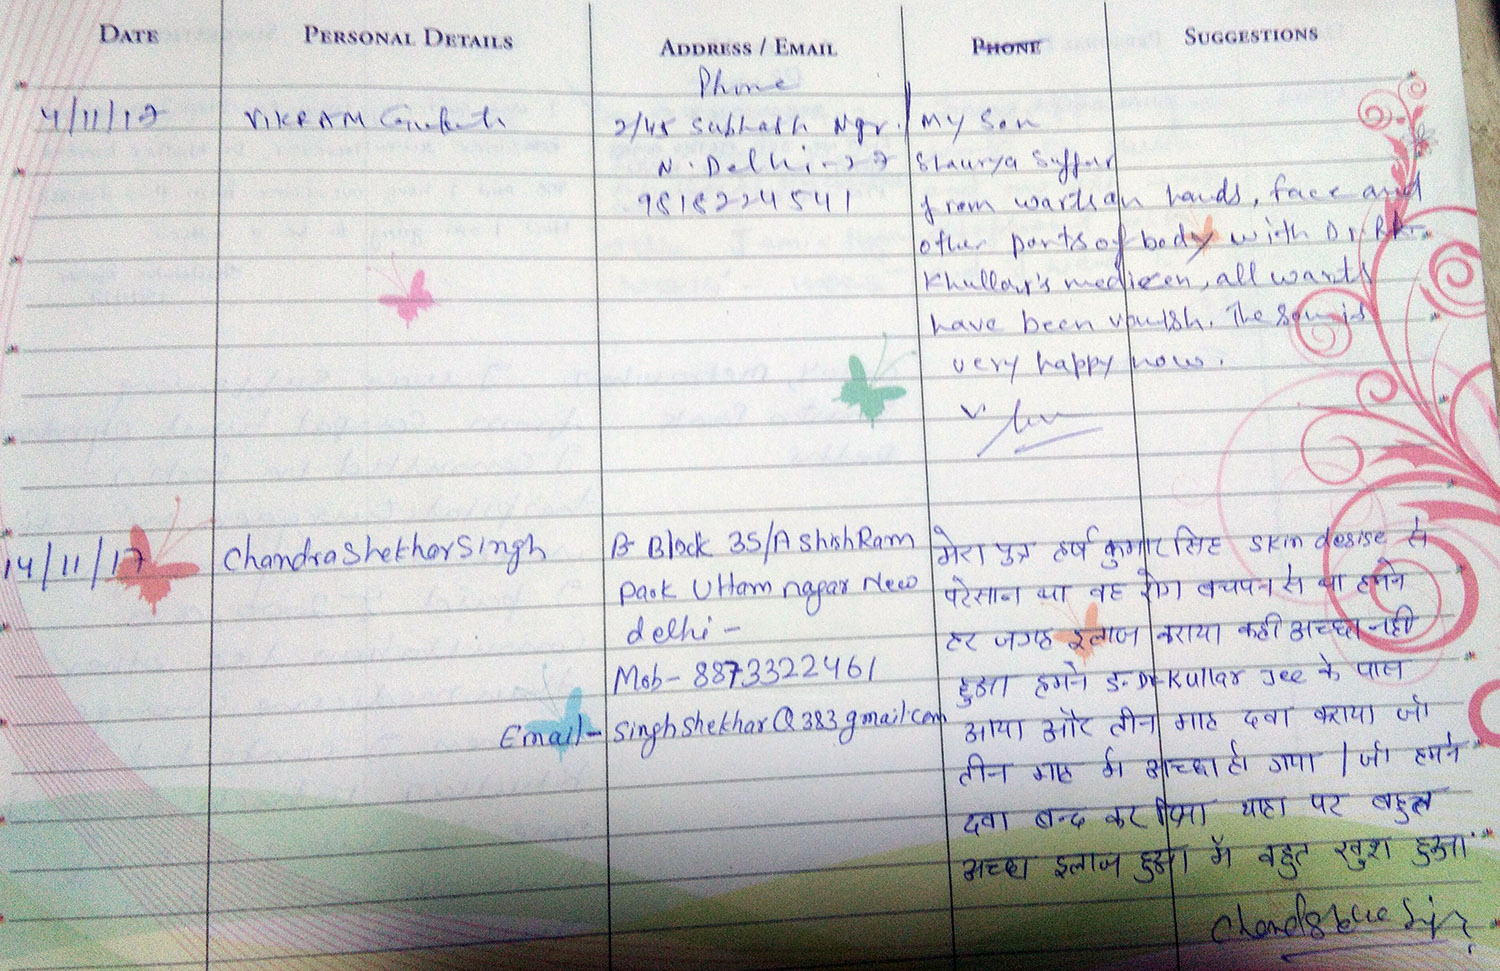 DATE PERSONAL DETAILS ADDRESS / EMAIL PHONE SUGGESTIONS
Phone
4/11/17 VIKRAM 2/45 Subhash Ngr. My Son
N. Delhi-27 Shaurya Suffer
9818224541 from warts on hands, face and
other parts of body with Dr. R.K.
Khullar's medicen, all warts
have been vanish. The son is
very happy now.
14/11/17 Chandra Shekhar Singh B Block 35/A Shish Ram मेरा पुत्र हर्ष कुमार सिंह skin desise से
Park Uttam nagar New परेसान था वह रोग बचपन से था हमने
delhi - हर जगह इलाज कराया कही अच्छा नही
Mob- 8873322461 हुआ हमने डॉ. Kullar Jee के पास
Email- Singhshekhar@383gmail.com आया और तीन माह दवा कराया जो
तीन माह में अच्छा हो गया । जो हमने
दवा बन्द कर दिया यहा पर बहुत
अच्छा इलाज हुआ मैं बहुत खुश हुआ